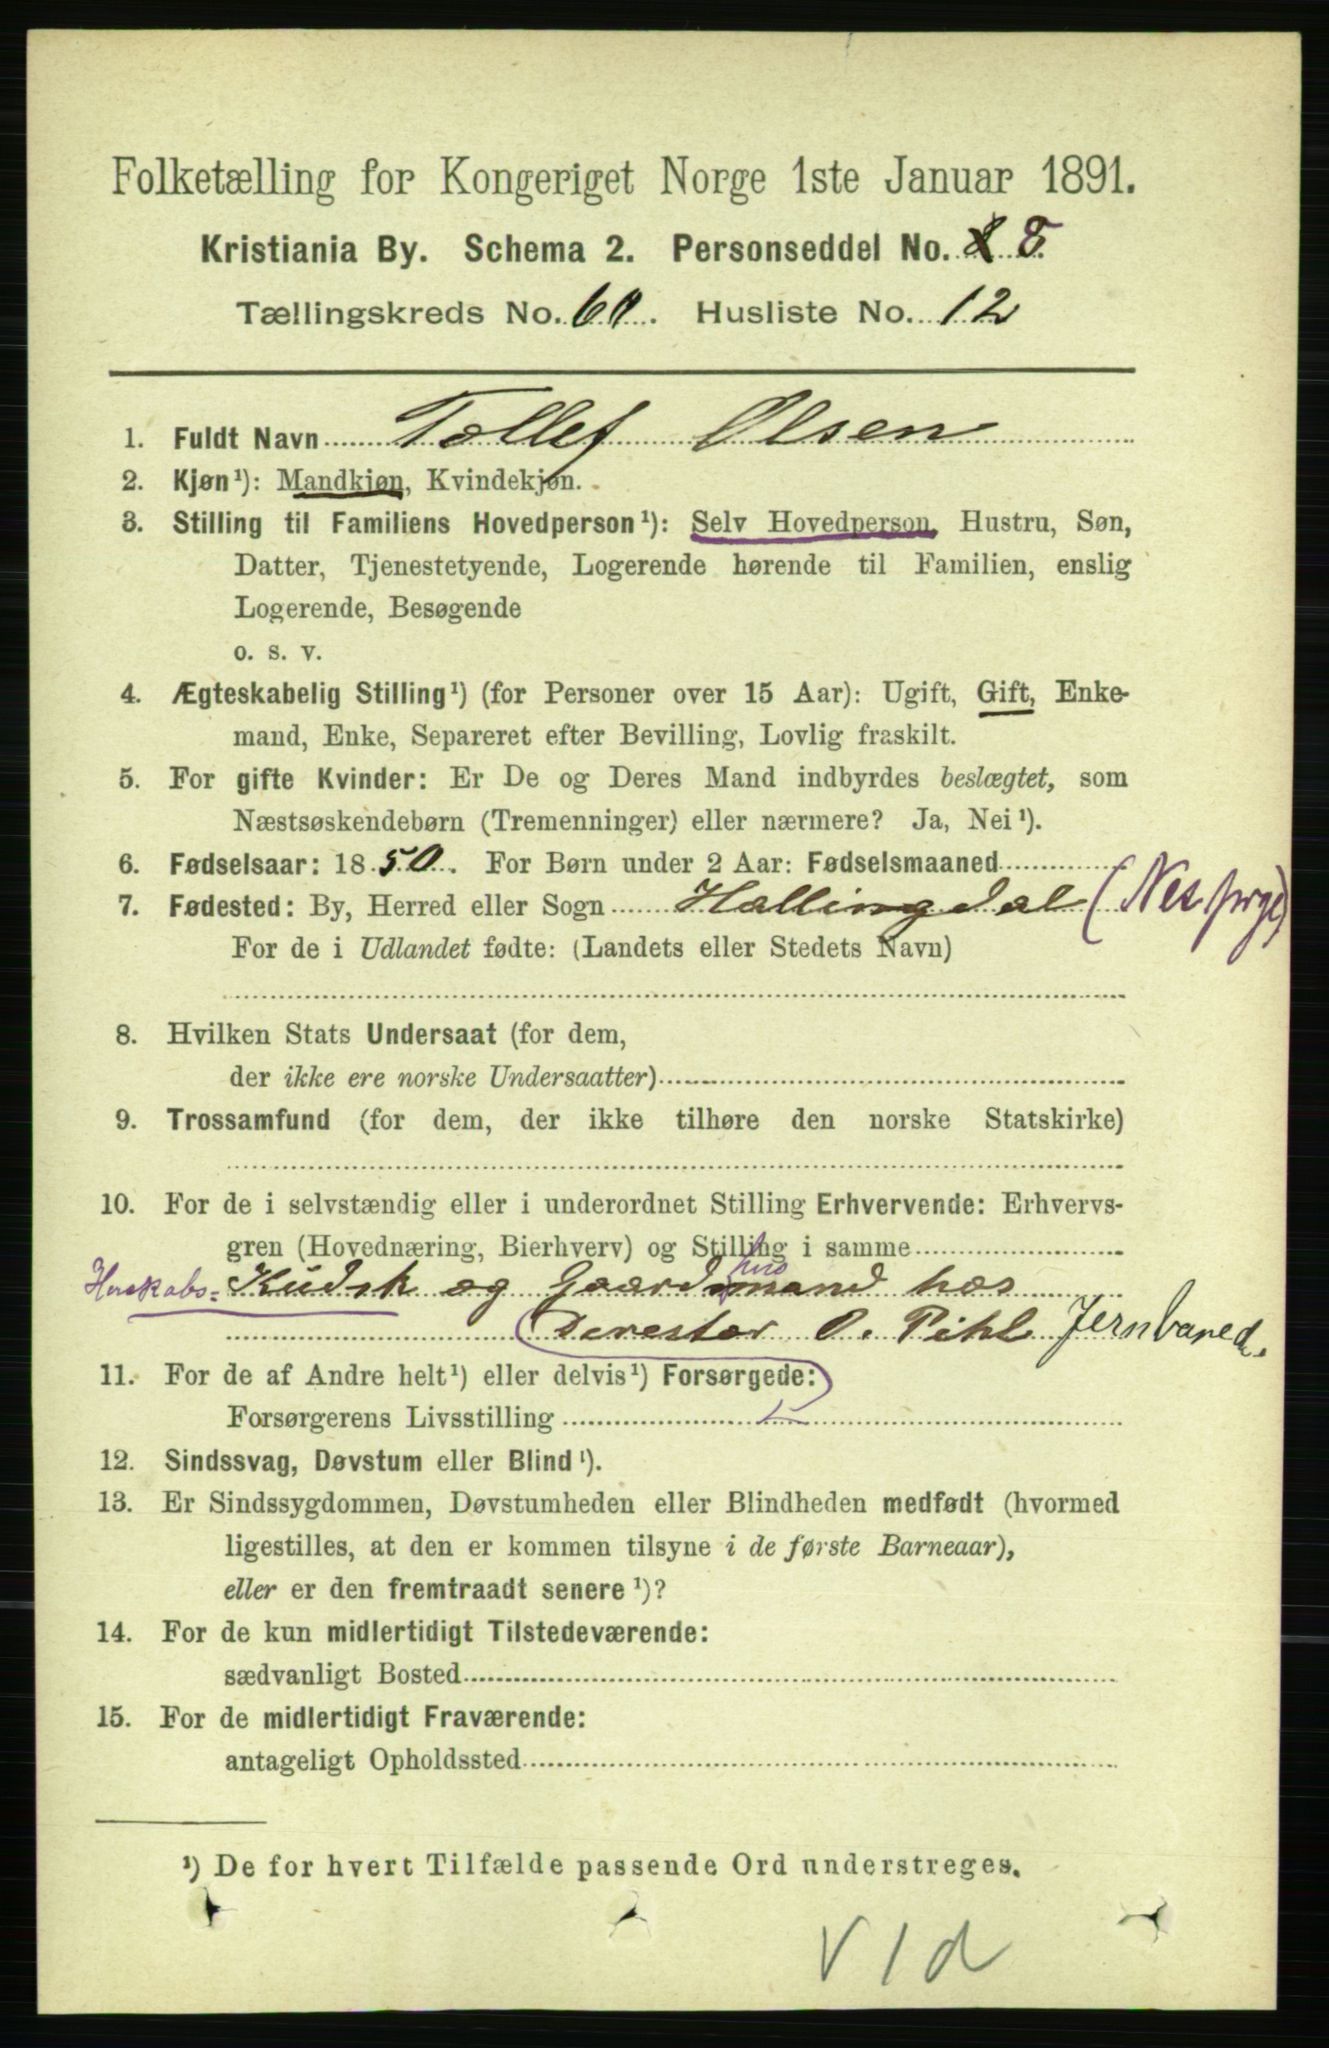 Folketælling for Kongeriget Norge 1ste Januar 1891.
Kristiania By. Schema 2. Personseddel No. 8
Tællingskreds No. 60. Husliste No. 12
1. Fuldt Navn Tollef Olsen
2. Kjøn¹): Mandkjøn, Kvindekjøn.
3. Stilling til Familiens Hovedperson¹): Selv Hovedperson, Hustru, Søn,
Datter, Tjenestetyende, Logerende hørende til Familien, enslig
Logerende, Besøgende
o. s. v.
4. Ægteskabelig Stilling¹) (for Personer over 15 Aar): Ugift, Gift, Enke-
mand, Enke, Separeret efter Bevilling, Lovlig fraskilt.
5. For gifte Kvinder: Er De og Deres Mand indbyrdes beslægtet, som
Næstsøskendebørn (Tremenninger) eller nærmere? Ja, Nei¹).
6. Fødselsaar: 1850. For Børn under 2 Aar: Fødselsmaaned
7. Fødested: By, Herred eller Sogn Hallingdal (Nes prgj)
For de i Udlandet fødte: (Landets eller Stedets Navn)
8. Hvilken Stats Undersaat (for dem,
der ikke ere norske Undersaatter)
9. Trossamfund (for dem, der ikke tilhøre den norske Statskirke)
10. For de i selvstændig eller i underordnet Stilling Erhvervende: Erhvervs-
gren (Hovednæring, Bierhverv) og Stilling i samme
Herskabs- Kudsk og Gaardmand hos
Direstør O. Pihl Jernbaned.
11. For de af Andre helt¹) eller delvis¹) Forsørgede:
Forsørgerens Livsstilling
12. Sindssvag, Døvstum eller Blind¹).
13. Er Sindssygdommen, Døvstumheden eller Blindheden medfødt (hvormed
ligestilles, at den er kommen tilsyne i de første Barneaar),
eller er den fremtraadt senere¹)?
14. For de kun midlertidigt Tilstedeværende:
sædvanligt Bosted
15. For de midlertidigt Fraværende:
antageligt Opholdssted
¹) De for hvert Tilfælde passende Ord understreges.
V 1d